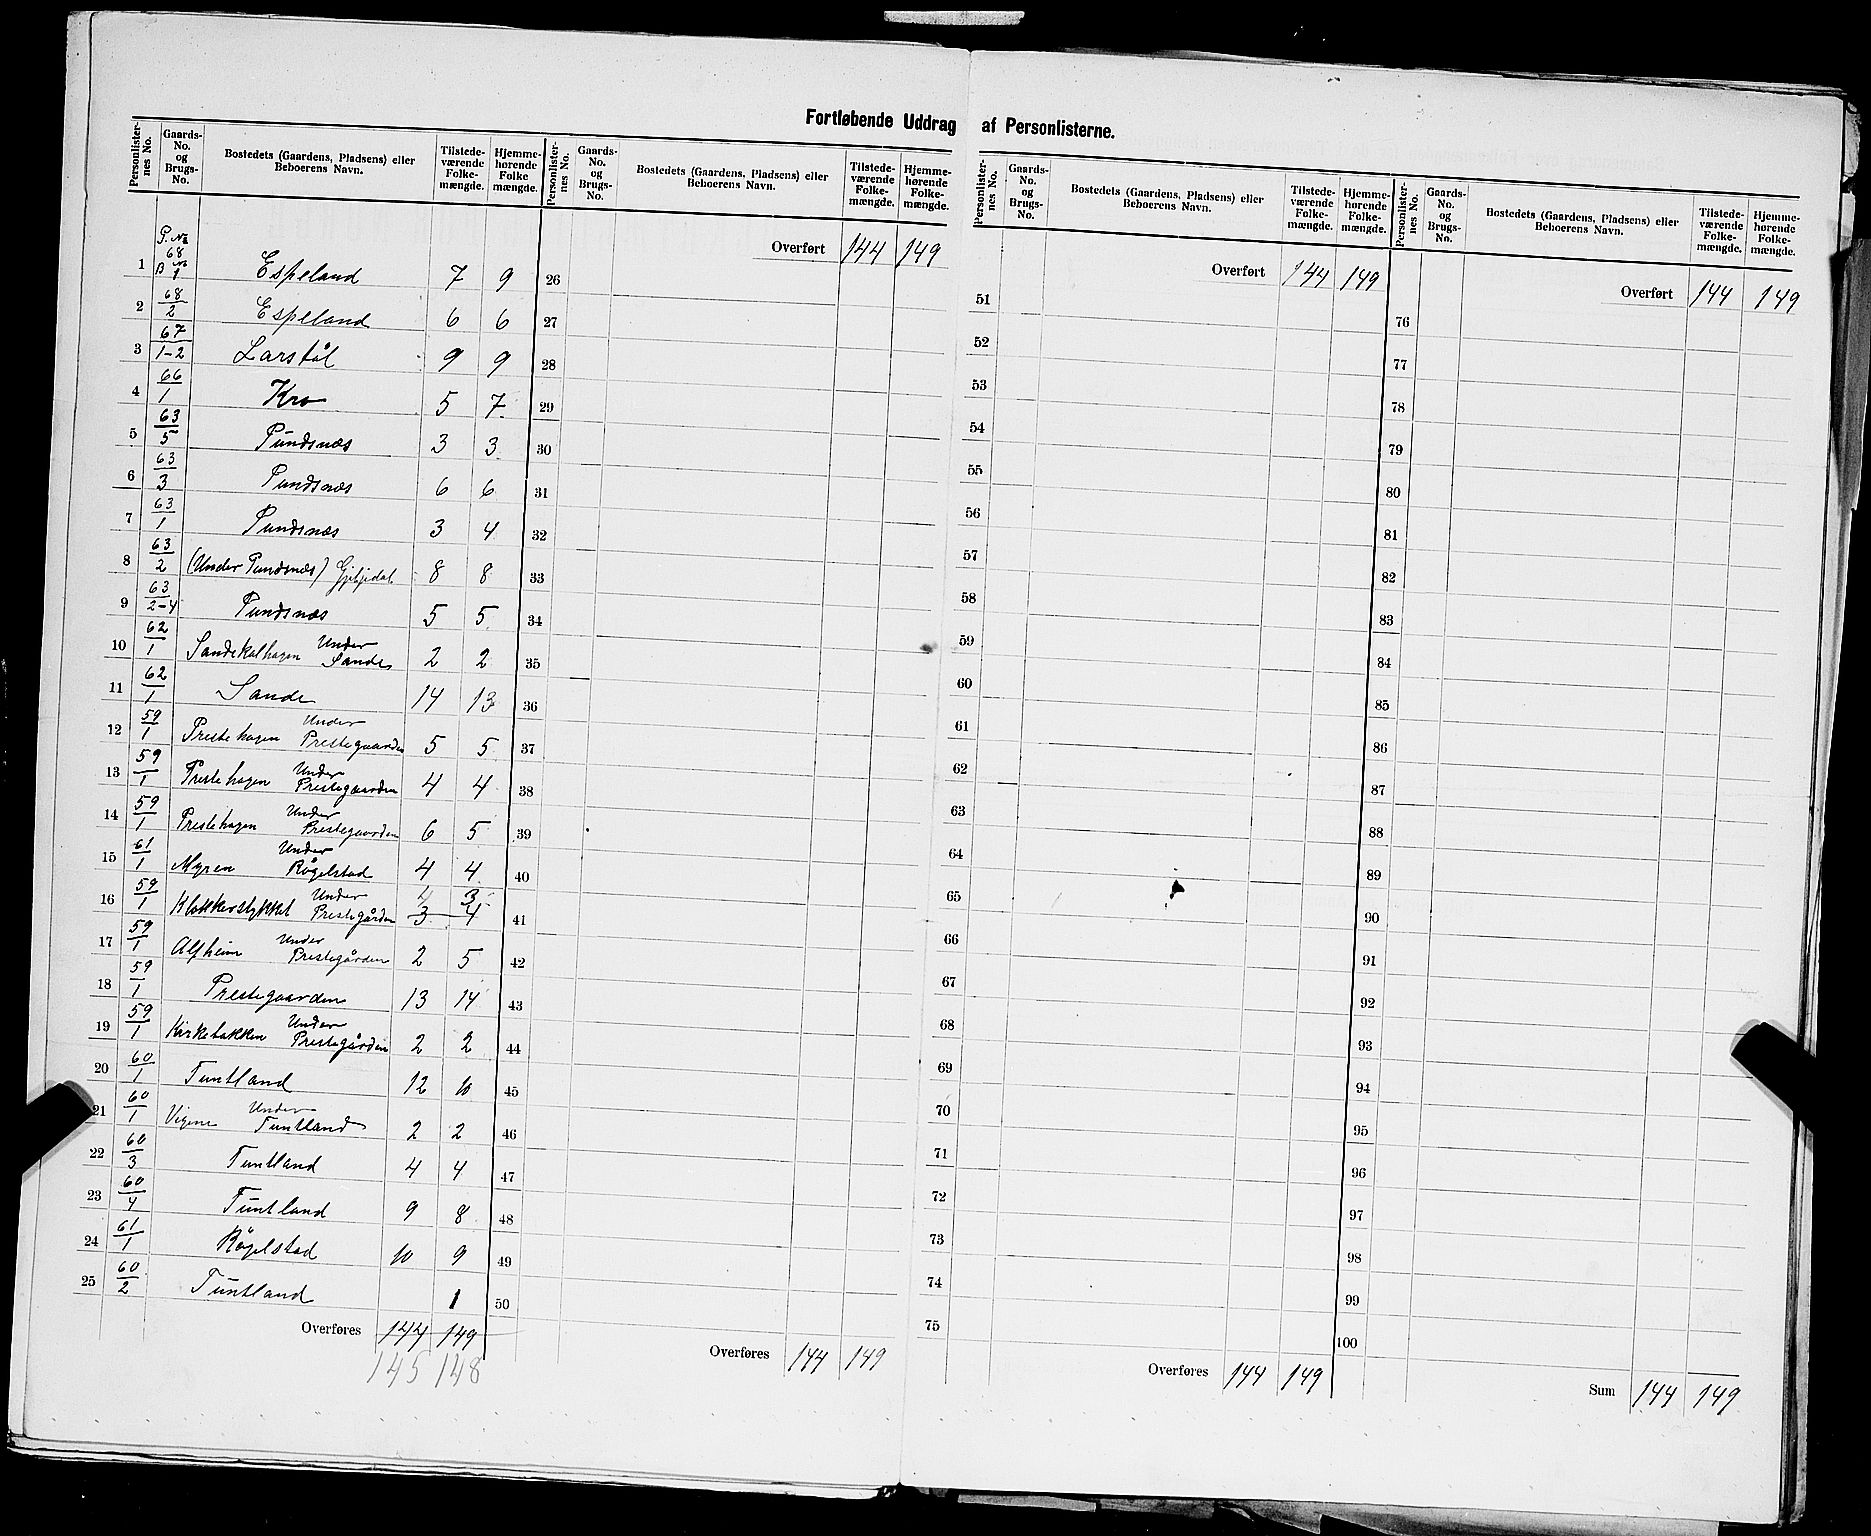 Fortløbende Uddrag af Personlisterne.
Personlister-nes No. Gaards-No. og Brugs-No. Bostedets (Gaardens, Pladsens) eller Beboerens Navn. Tilstede-værende Folke-mængde. Hjemme-hørende Folke mængde.
1 G. No 68 B No 1 Espeland 7 9
2 68/2 Espeland 6 6
3 67/1-2 Larstøl 9 9
4 66/1 Kro 5 7
5 63/5 Pundsnæs 3 3
6 63/3 Pundsnæs 6 6
7 63/1 Pundsnæs 3 4
8 63/2 (Under Pundsnæs) 8 8
9 63/2-4 Pundsnæs 5 5
10 62/1 Sandekalhagen Under Sande 2 2
11 62/1 Sande 14 13
12 59/1 Prestehagen Under Prestegaarden 5 5
13 59/1 Prestehagen Under Prestegaarden 4 4
14 59/1 Prestehagen Under Prestegaarden 6 5
15 61/1 Myren Under Røgelstad 4 4
16 59/1 Klokkerstykket Under Prestegården 4 3 3 4
17 59/1 Alfheim Under Prestegården 2 5
18 59/1 Prestegaarden 13 14
19 59/1 Kirkebakken Under Prestegården 2 2
20 60/1 Tuntland 12 10
21 60/1 Vigene Under Tuntland 2 2
22 60/3 Tuntland 4 4
23 60/4 Tuntland 9 8
24 61/1 Røgelstad 10 9
25 60/2 Tuntland 1
Overføres 144 149
145 148
Personlister-nes No. Gaards-No. og Brugs-No. Bostedets (Gaardens, Pladsens) eller Beboerens Navn. Tilstede-værende Folke-mængde. Hjemme-hørende Folke-mængde.
Overført 144 149
26
27
28
29
30
31
32
33
34
35
36
37
38
39
40
41
42
43
44
45
46
47
48
49
50
Overføres 144 149
Personlister-nes No. Gaards-No. og Brugs-No. Bostedets (Gaardens, Pladsens) eller Beboerens Navn. Tilstede-værende Folke-mængde. Hjemme-hørende Folke-mængde.
Overført 144 149
51
52
53
54
55
56
57
58
59
60
61
62
63
64
65
66
67
68
69
70
71
72
73
74
75
Overføres 144 149
Personlister-nes No. Gaards-No. og Brugs-No. Bostedets (Gaardens, Pladsens) eller Beboerens Navn. Tilstede-værende Folke-mængde. Hjemme-hørende Folke-mængde.
Overført 144 149
76
77
78
79
80
81
82
83
84
85
86
87
88
89
90
91
92
93
94
95
96
97
98
99
100
Sum 144 149